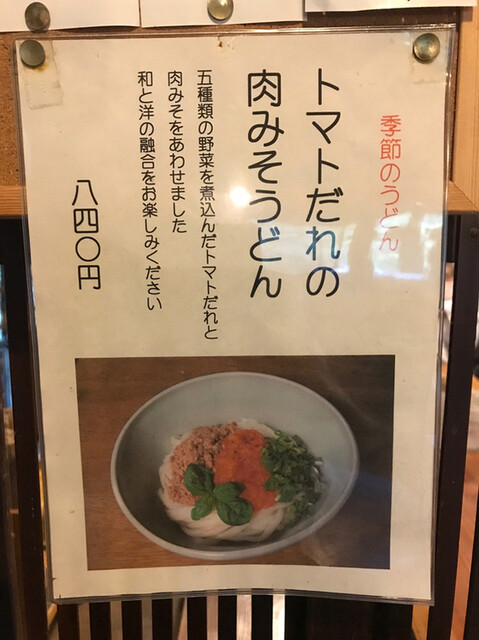 季節のうどん
トマトだれの
肉みそうどん
五種類の野菜を煮込んだトマトだれと
肉みそをあわせました
和と洋の融合をお楽しみください
八四〇円